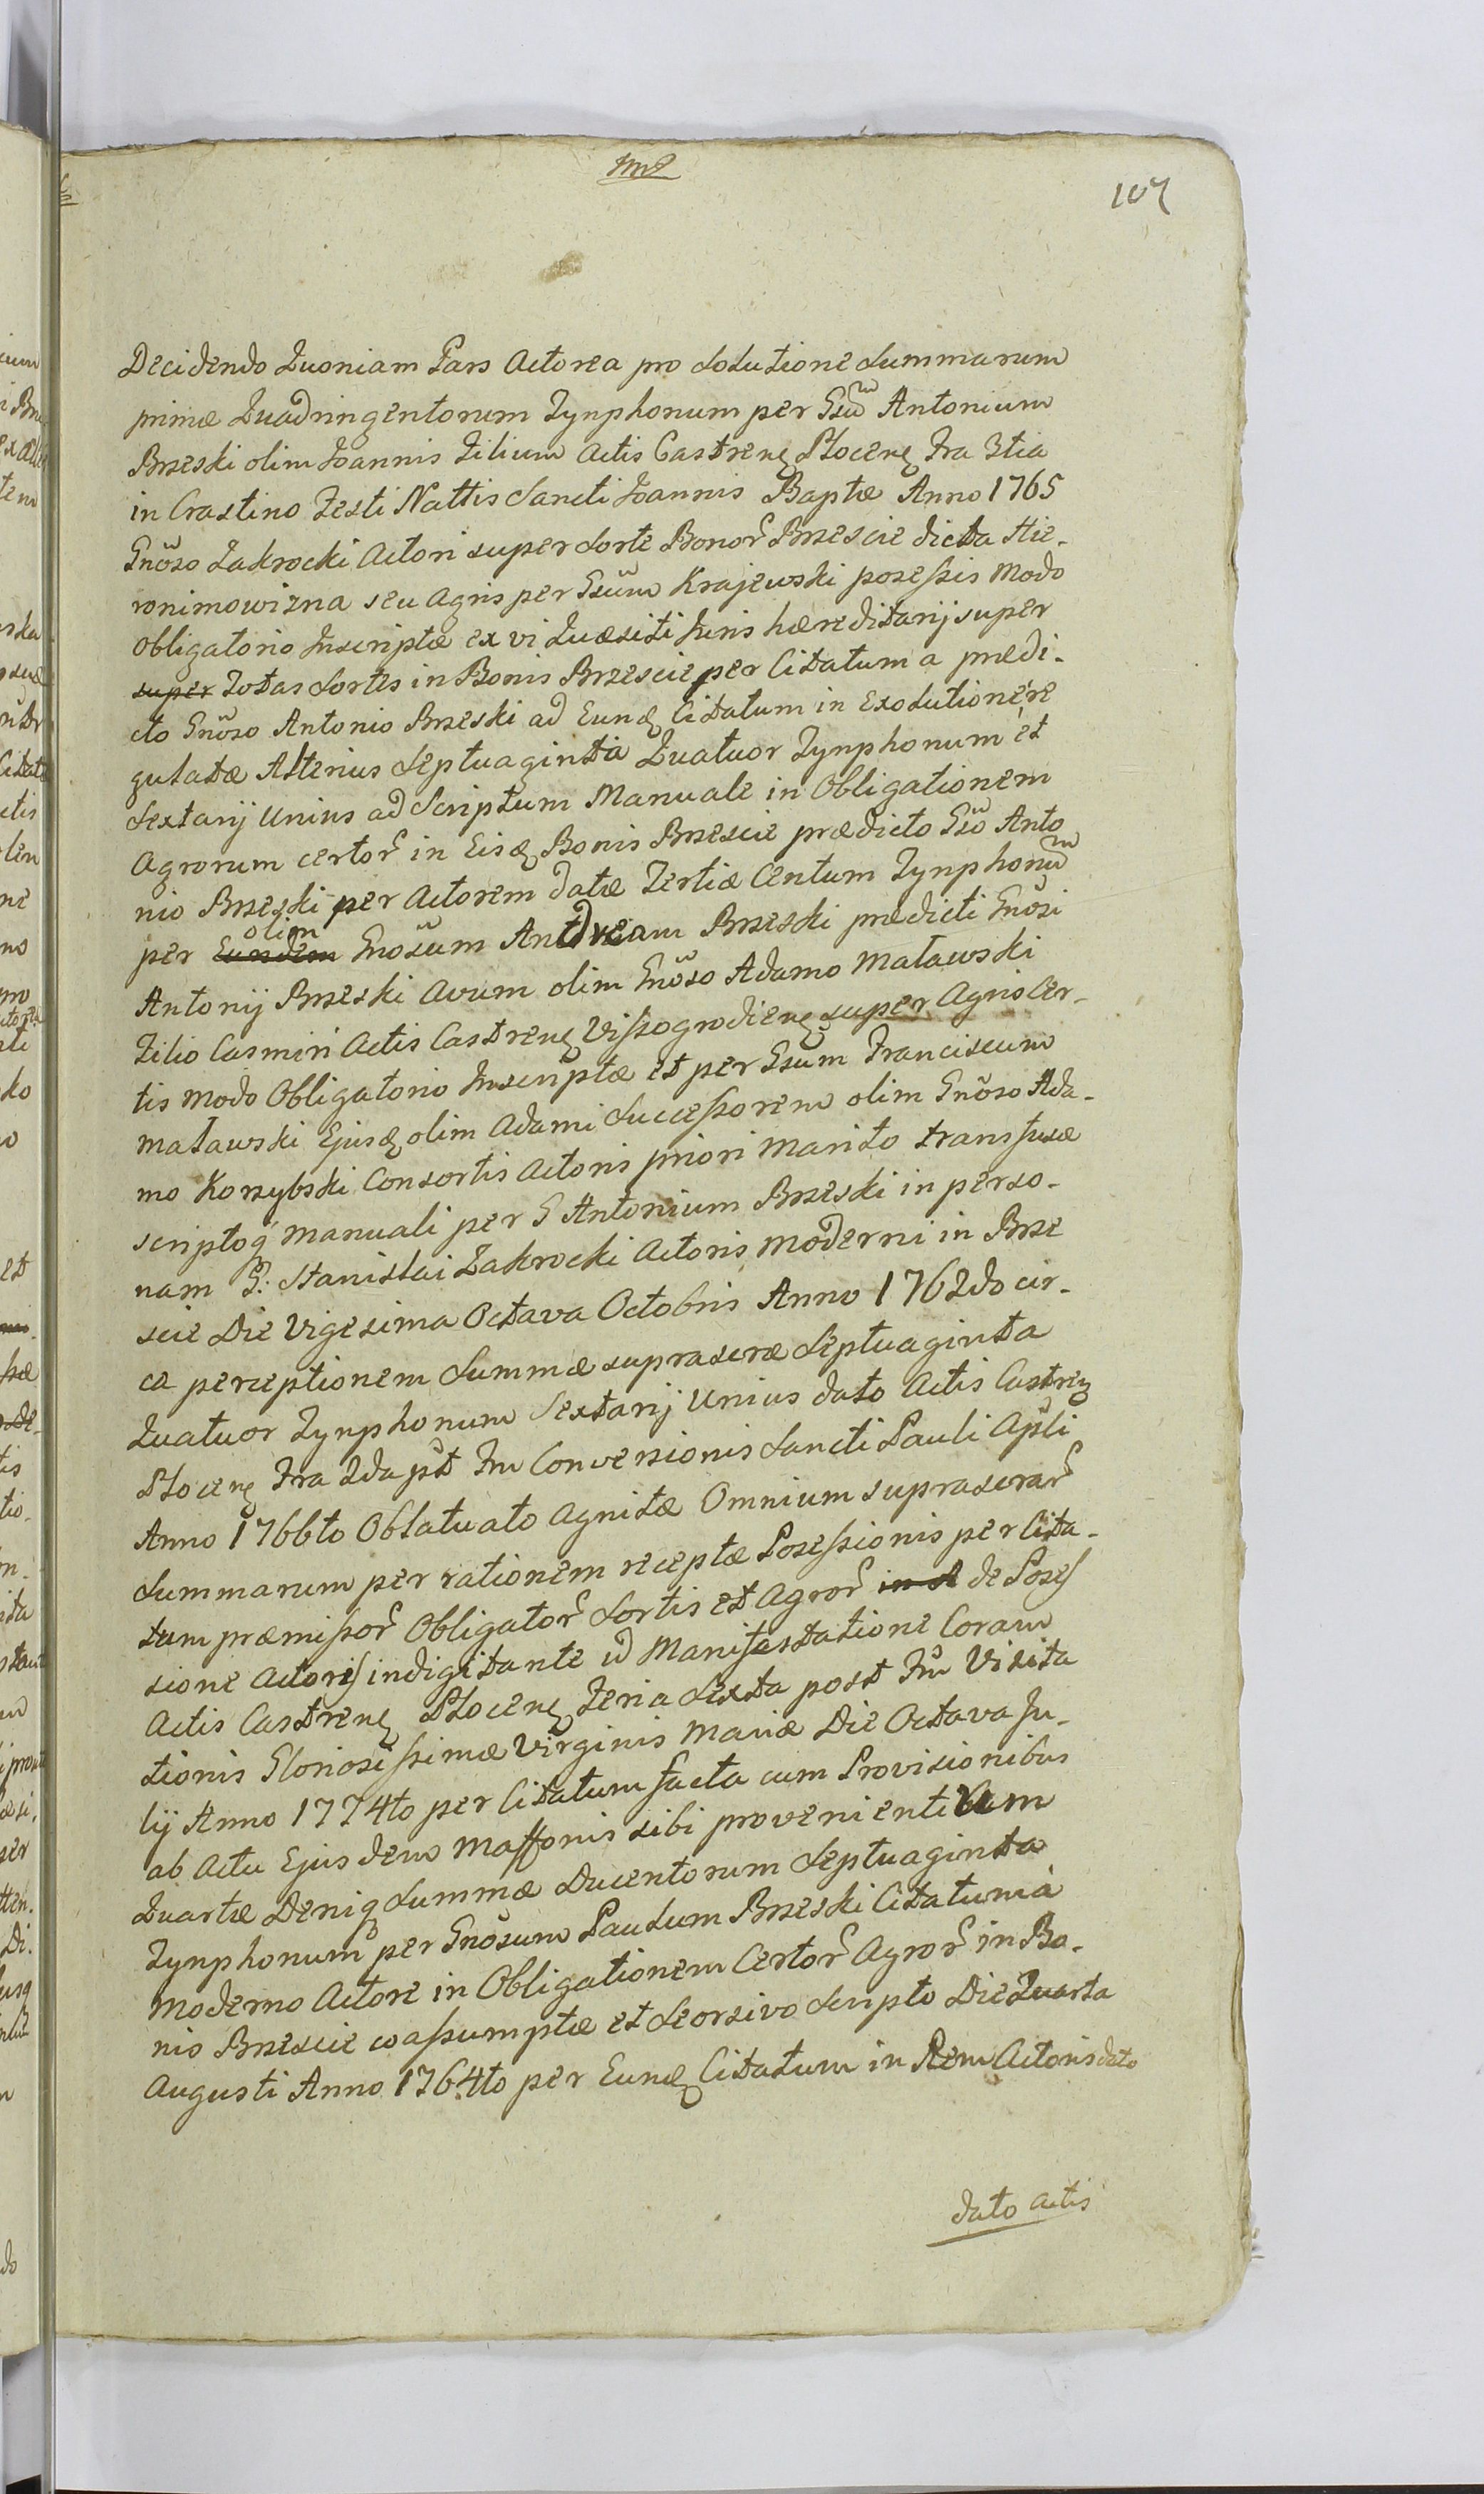 107
Decidendo Quoniam Pars Actorea pro Solutione Summarum
primæ Quadringentorum Tynphonum per Gsũm Antonium
Brzeski olim Joannis Filium Actis Castren Plocen Fra 3tia
in Crastino Festi Nattis Sancti Joannis Baptæ Anno 1765
Gnõso Zakrocki Actori super Sorte Bonor Brzescie dicta Hie-
ronimowizna seu Agris per Gsũm Krajewski posessis Modo
Obligatorio Inscriptæ ex vi Quæsiti Juris hæreditarij super
super Totas Sortes in Bonis Brzescie per Citatum a prædi-
cto Gnõso Antonio Brzeski ad Eund Citatum in Exolutione re
gulatæ Alterius Septuaginta Quatuor Tynphonum et
Sextarij Unius ad Scriptum Manuale in Obligationem
Agrorum certor in Eisd Bonis Brzescie prædicto Gsõ Anto
nio Brzeski per Actorem datæ Tertiæ Centum Tynphonũm
per Eundem olim Gnosũm Andream Brzeski prædicti Gnõsi
Antonij Brzeski Avum olim Gnõso Adamo Matawski
Filio Casmiri Actis Castren Vissogrodien super Agris Cer-
tis Modo Obligatorio Inscriptæ et per Gsũm Franciscum
Matawski Ejusd olim Adami Successorem olim Gnõso Ada-
mo Korzybski Consortis Actoris priori Marito transfusæ
scriptoq Manuali per G Antonium Brzeski in perso-
nam G: Stanislai Zakrocki Actoris Moderni in Brze
scie Die Vigesima Octava Octobris Anno 1762do cir-
ca perceptionem Summæ suprascræ Septuaginta
Quatuor Tynphonum Sextarij Unius dato Actis Castren
Plocen Fra 2da pst Fm Conversionis Sancti Pauli Apli
Anno 1766to Oblatuato Agnitæ Omnium suprascrar
Summarum per rationem receptæ Posessionis per Cita-
tum præmissor Obligator Sortis et Agror de Poses
sione Actoris indigitante id Manifestatione Coram
Actis Castren Plocen Feria Sexta post Fm Visita
tionis Gloriosissimæ Virginis Mariæ Die Octava Ju-
lij Anno 1774to per Citatum facta cum Provisionibus
ab Actu Ejusdem Maffonis sibi provenientibum
Quartæ Deniq Summæ Ducentorum Septuaginta
Tynphonum per Gnõsum Paulum Brzeski Citatum a
Moderno Actore in Obligationem Certor Agror in Bo-
nis Brzescie coassumptæ et Seorsivo Scripto Die Quarta
Augusti Anno 1764to per Eund Citatum in Rem Actoris dato
dato Actis